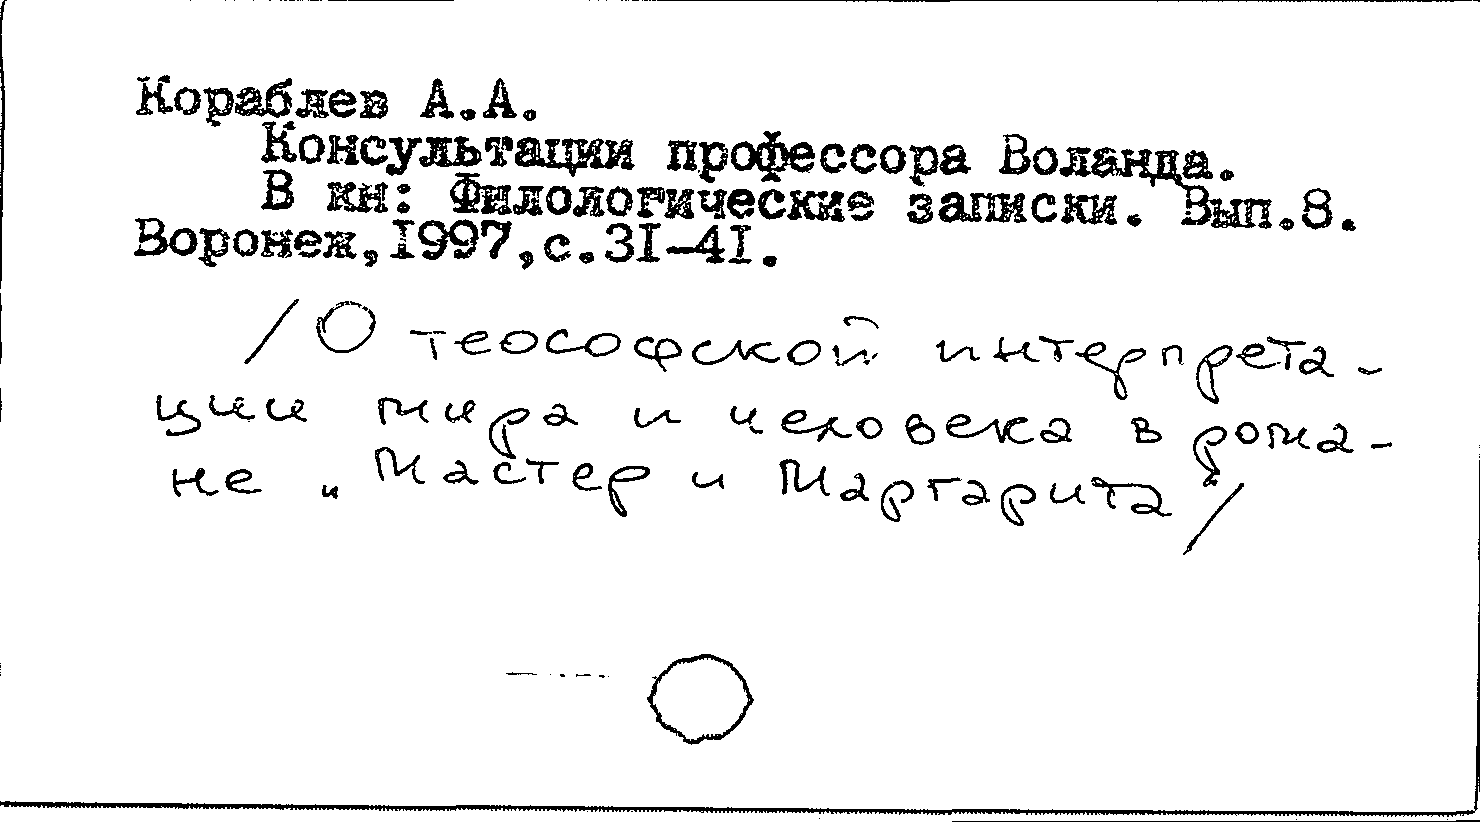 Кораблев А.А.
Консультации профессора Воланда.
В кн: Филологические записки. Вып.8.
Воронеж,I997,с.3I-4I.
/О теософской интерпрета-
ции мира и человека в рома-
не „Мастер и Маргарита"/